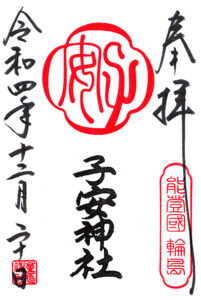 奉拝
能登國輪島
子安
子安神社
令和四年十二月二十日